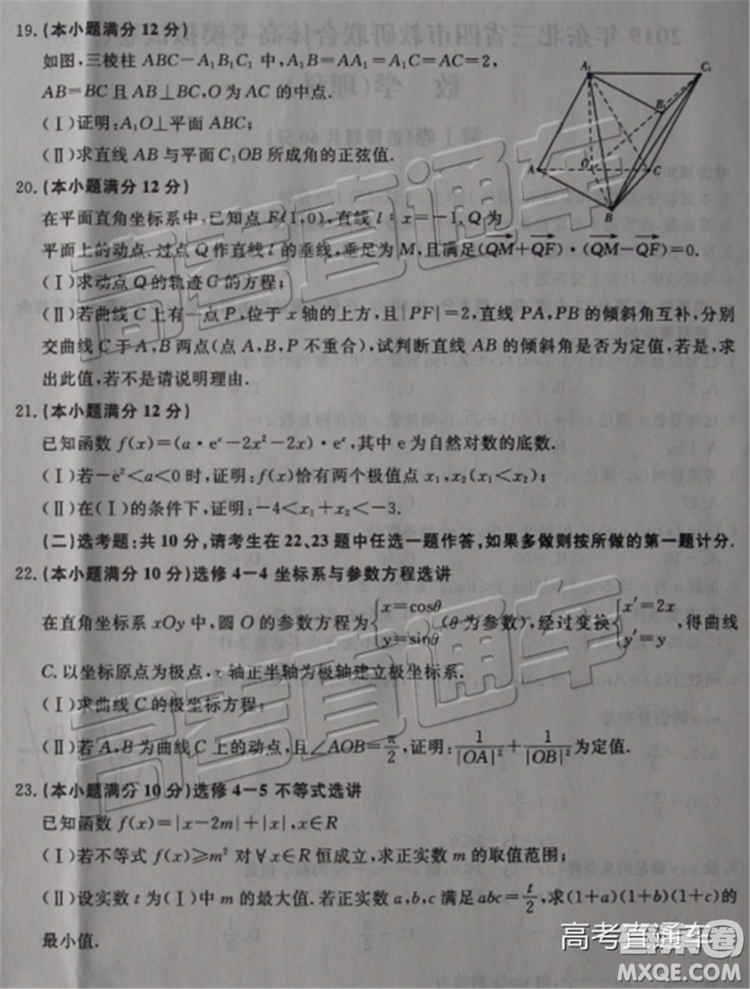 19. (本小题满分 12 分)
如图,三棱柱 ABC—A₁B₁C₁ 中,A₁B=AA₁=A₁C=AC=2,
AB=BC 且 AB⊥BC,O 为 AC 的中点.
(Ⅰ)证明:A₁O⊥平面 ABC;
(Ⅱ)求直线 AB 与平面 C₁OB 所成角的正弦值.
A₁ C₁ B₁ A O C B
20. (本小题满分 12 分)
在平面直角坐标系中,已知点 F(1,0),直线 l:x=−1,Q 为
平面上的动点.过点 Q 作直线 l 的垂线,垂足为 M,且满足(QM+QF)·(QM−QF)=0.
(Ⅰ)求动点 Q 的轨迹 C 的方程;
(Ⅱ)若曲线 C 上有一点 P,位于 x 轴的上方,且|PF|=2,直线 PA,PB 的倾斜角互补,分别
交曲线 C 于 A,B 两点(点 A,B,P 不重合),试判断直线 AB 的倾斜角是否为定值,若是,求
出此值,若不是请说明理由.
21. (本小题满分 12 分)
已知函数 f(x)=(a·eˣ−2x²−2x)·eˣ,其中 e 为自然对数的底数.
(Ⅰ)若−e²<a<0 时,证明:f(x)恰有两个极值点 x₁,x₂(x₁<x₂);
(Ⅱ)在(Ⅰ)的条件下,证明:−4<x₁+x₂<−3.
(二)选考题:共 10 分,请考生在 22、23 题中任选一题作答,如果多做则按所做的第一题计分.
22. (本小题满分 10 分)选修 4—4 坐标系与参数方程选讲
在直角坐标系 xOy 中,圆 O 的参数方程为{x=cosθ y=sinθ(θ 为参数),经过变换{x′=2x y′=y,得曲线
C.以坐标原点为极点,x 轴正半轴为极轴建立极坐标系.
(Ⅰ)求曲线 C 的极坐标方程;
(Ⅱ)若 A,B 为曲线 C 上的动点,且∠AOB=π/2,证明:1/|OA|²+1/|OB|²为定值.
23. (本小题满分 10 分)选修 4—5 不等式选讲
已知函数 f(x)=|x−2m|+|x|,x∈R
(Ⅰ)若不等式 f(x)≥m² 对∀x∈R 恒成立,求正实数 m 的取值范围;
(Ⅱ)设实数 t 为(Ⅰ)中 m 的最大值.若正实数 a,b,c 满足 abc=t/2,求(1+a)(1+b)(1+c)的
最小值.
高考直通车
高考直通车
高考直通车
答案圈
MXQE.COM